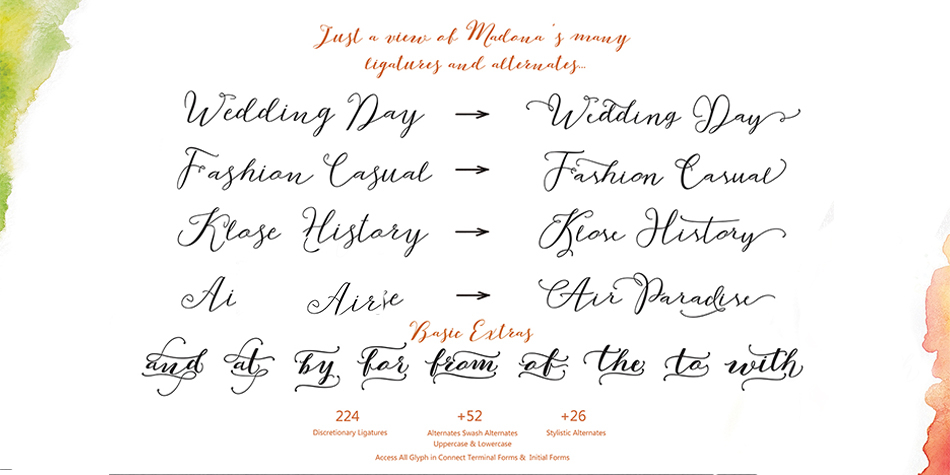 Just a view of Madona's many
ligatures and alternates...
Wedding Day → Wedding Day
Fashion Casual → Fashion Casual
Klose History → Klose History
Ai → Air Paradise
Basic Extras
and at by for from of the to with
224 +52 +26
Discretionary Ligatures Alternates Swash Alternates Stylistic Alternates
Uppercase & Lowercase
Access All Glyph in Connect Terminal Forms & Initial Forms